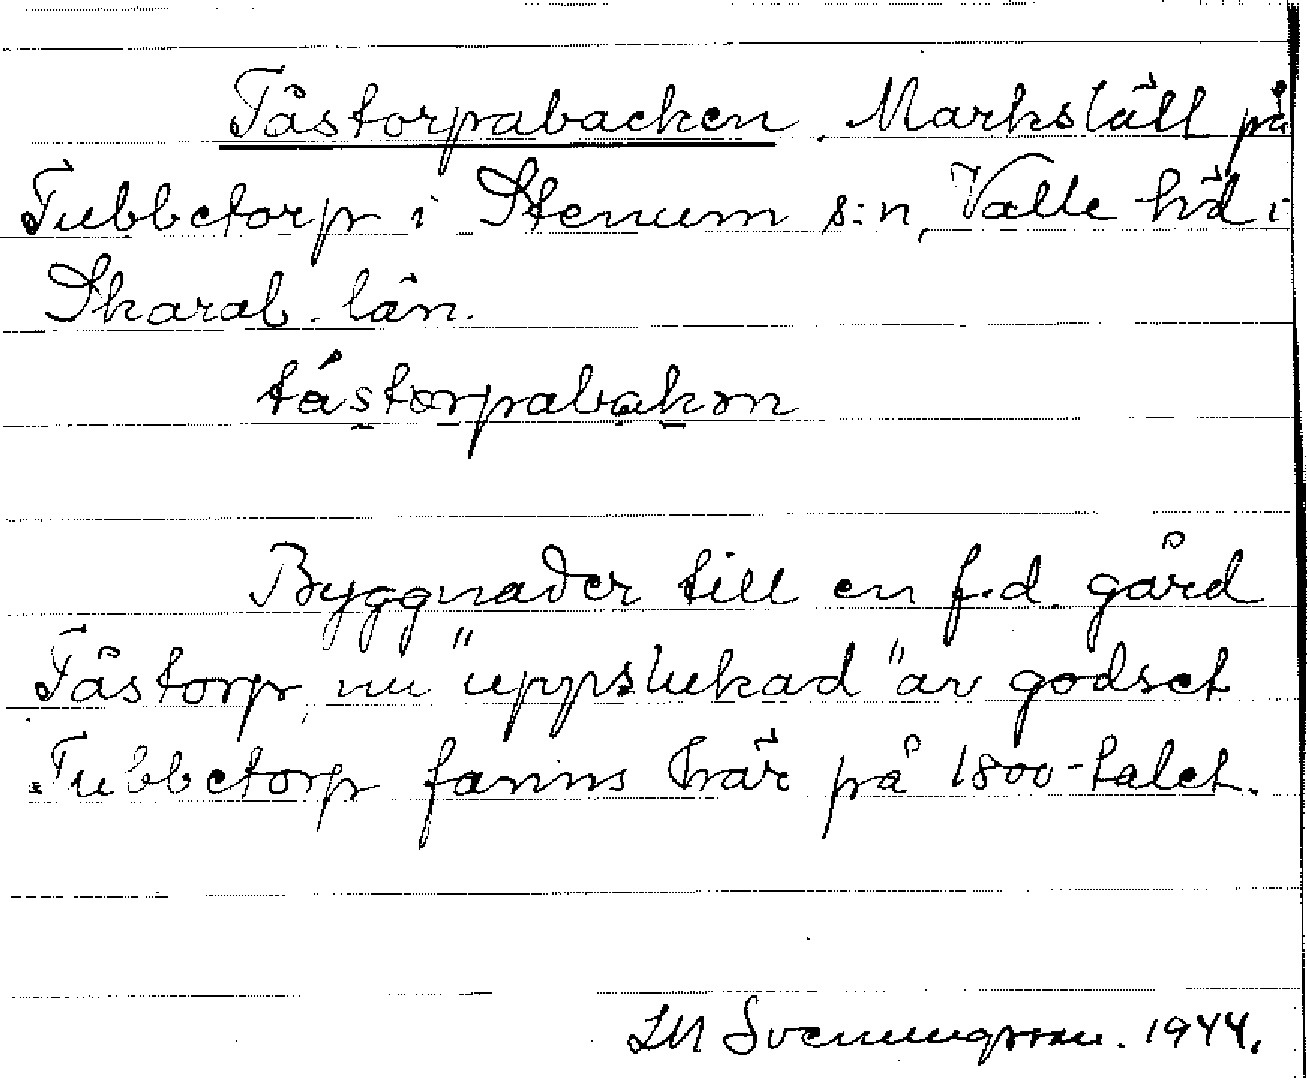 Tåstorpabacken. Markslätt på
Tubbetorp i Stenum s:n, Valle hd i
Skarab. län.
tåstorpabakən
Byggnader till en f.d. gård
Tåstorp, nu "uppslukad" av godset
Tubbetorp fanns här på 1800-talet.
Svenungsson. 1944.